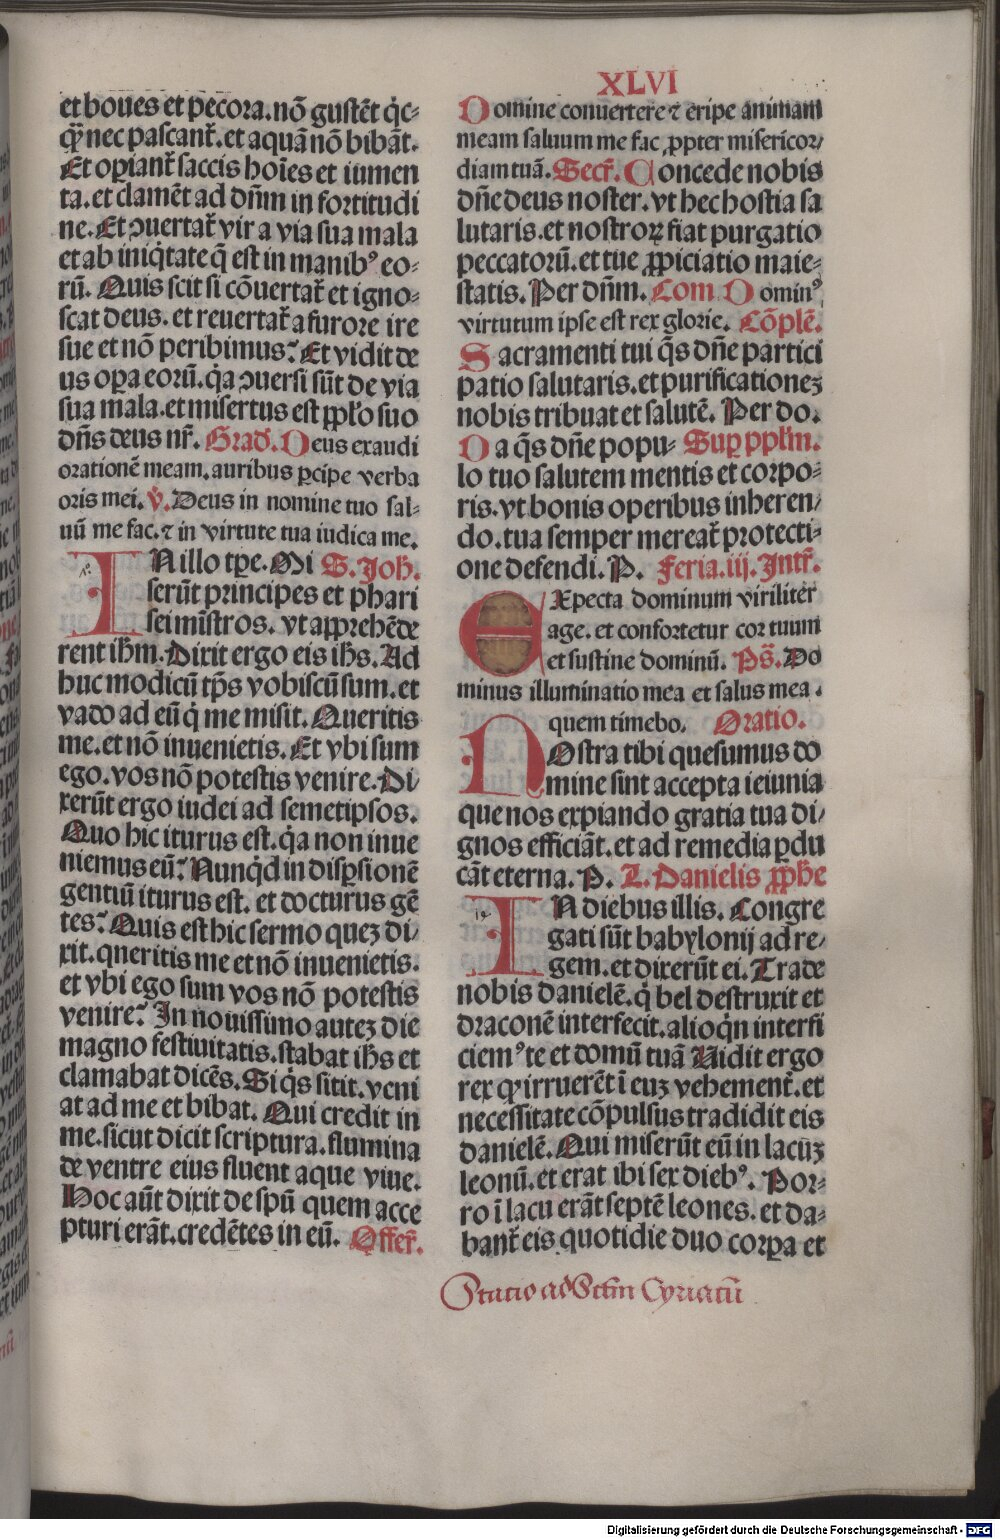 XLVI
et boues et pecora. nō gustēt q̇c-
q̄ꝫ nec pascant᷑. et aquā nō bibāt.
Et oꝑiant᷑ saccis hoīes et iumen
ta. et clamēt ad dn̄m in fortitudi
ne. Et ꝯuertat᷑ vir a via sua mala
et ab iniq̇tate q̄ est in manibꝰ eo-
rū. Quis scit si cōuertat᷑ et igno-
scat deus. et reuertat᷑ a furore ire
sue et nō peribimus? Et vidit de
us oꝑa eorū. q̇a ꝯuersi sūt de via
sua mala. et misertus est pplo suo
dn̄s deus nr̄. Grad̄. Deus exaudi
orationē meam. auribus ꝑcipe verba
oris mei. ℣. Deus in nomine tuo sal-
uū me fac. ⁊ in virtute tua iudica me.
IN illo tꝑe. Mi S. Joh̄.
serūt principes et phari
sei mīstros. vt apprehēde
rent ih̄m. Dixit ergo eis ih̄s. Ad
huc modicū tp̄s vobiscū sum. et
vado ad eū q̇ me misit. Queritis
me. et nō inuenietis. Et vbi sum
ego. vos nō potestis venire. Di-
xerūt ergo iudei ad semetipsos.
Quo hic iturus est. q̇a non inue
niemus eū? Nunq̇d in disꝑsionē
gentiū iturus est. et docturus gē
tes? Quis est hic sermo quez di-
xit. qneritis me et nō inuenietis.
et vbi ego sum vos nō potestis
venire? In nouissimo autez die
magno festiuitatis. stabat ih̄s et
clamabat dicēs. Si q̇s sitit. veni
at ad me et bibat. Qui credit in
me. sicut dicit scriptura. flumina
de ventre eius fluent aque viue.
Hoc aūt dixit de spū quem acce
pturi erāt. credētes in eū. Offer᷑.
Domine conuertere ⁊ eripe animam
meam saluum me fac ꝓpter misericor-
diam tuā. Secr᷑. Concede nobis
dn̄e deus noster. vt hec hostia sa
lutaris. et nostroꝝ fiat purgatio
peccatorū. et tue ꝓpiciatio maie-
statis. Per dn̄m. Com̄ Dominꝰ
virtutum ipse est rex glorie. Cōplē.
Sacramenti tui q̄s dn̄e partici
patio salutaris. et purificationez
nobis tribuat et salutē. Per do.
Da q̄s dn̄e popu- Suꝑ pplm̄.
lo tuo salutem mentis et corpo-
ris. vt bonis operibus inheren-
do. tua semper mereat᷑ protecti-
one defendi. P. Feria. iij. Intr᷑.
EXpecta dominum viriliter
age. et confortetur cor tuum
et sustine dominū. Ps̄. Do
minus illuminatio mea et salus mea.
quem timebo. Oratio.
NOstra tibi quesumus do
mine sint accepta ieiunia
que nos expiando gratia tua di-
gnos efficiāt. et ad remedia ꝑdu
cāt eterna. P. L. Danielis ꝓph̄e
IN diebus illis. Congre
gati sūt babylonij ad re-
gem. et dixerūt ei. Trade
nobis danielē. q̇ bel destruxit et
draconē interfecit. alioq̇n interfi
ciemꝰ te et domū tuā Uidit ergo
rex ꝙ irruerēt ī euꝫ vehement᷑. et
necessitate cōpulsus tradidit eis
danielē. Qui miserūt eū in lacuꝫ
leonū. et erat ibi sex diebꝰ. Por-
ro ī lacu erāt septē leones. et da-
bant᷑ eis quotidie duo corꝑa et
Statio ad Sctm̄ Cyriacū
Digitalisierung gefördert durch die Deutsche Forschungsgemeinschaft - DFG